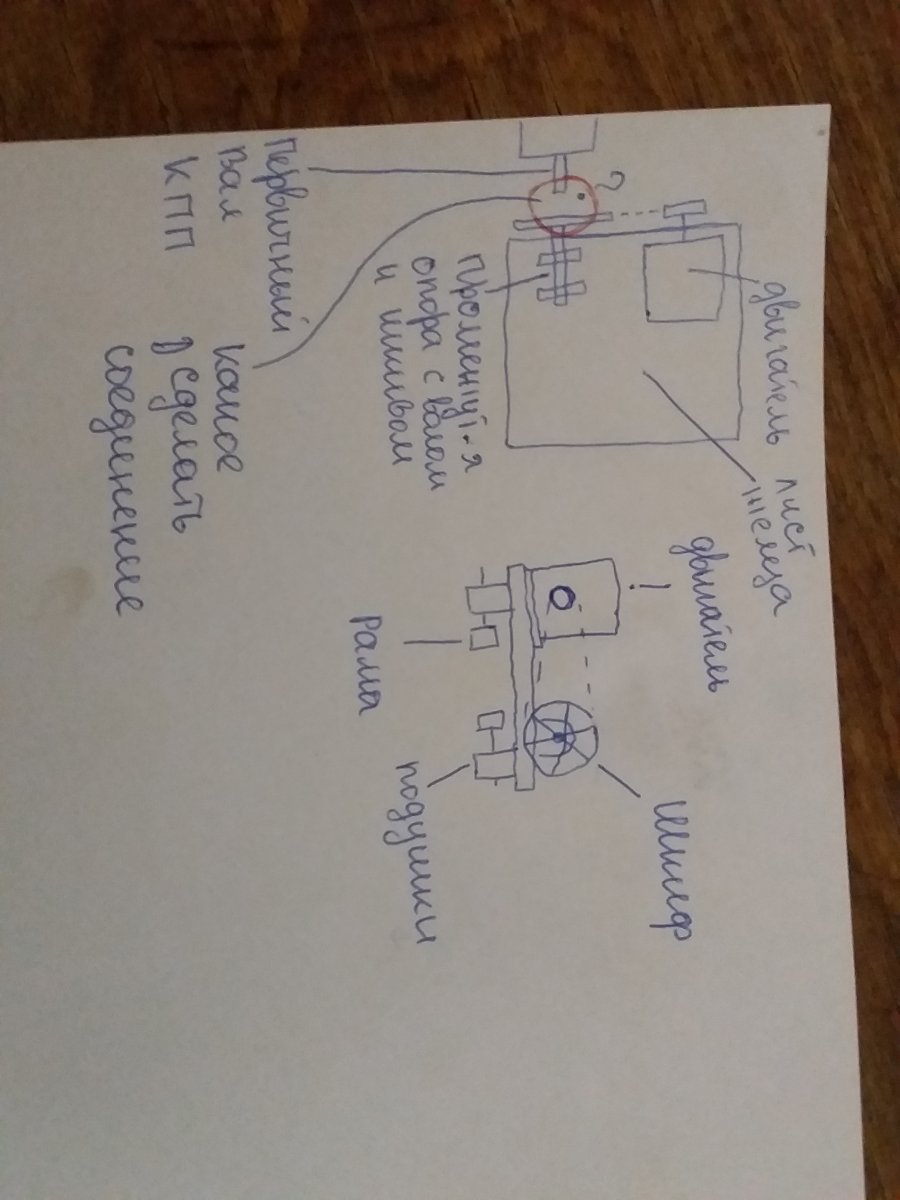 двигатель
лист
железа
?
Промежут-я
опора с валом
и шкивом
Первичный
Вал
КПП
какое
сделать
соединение
двигатель
Шкиф
Рама
подушки